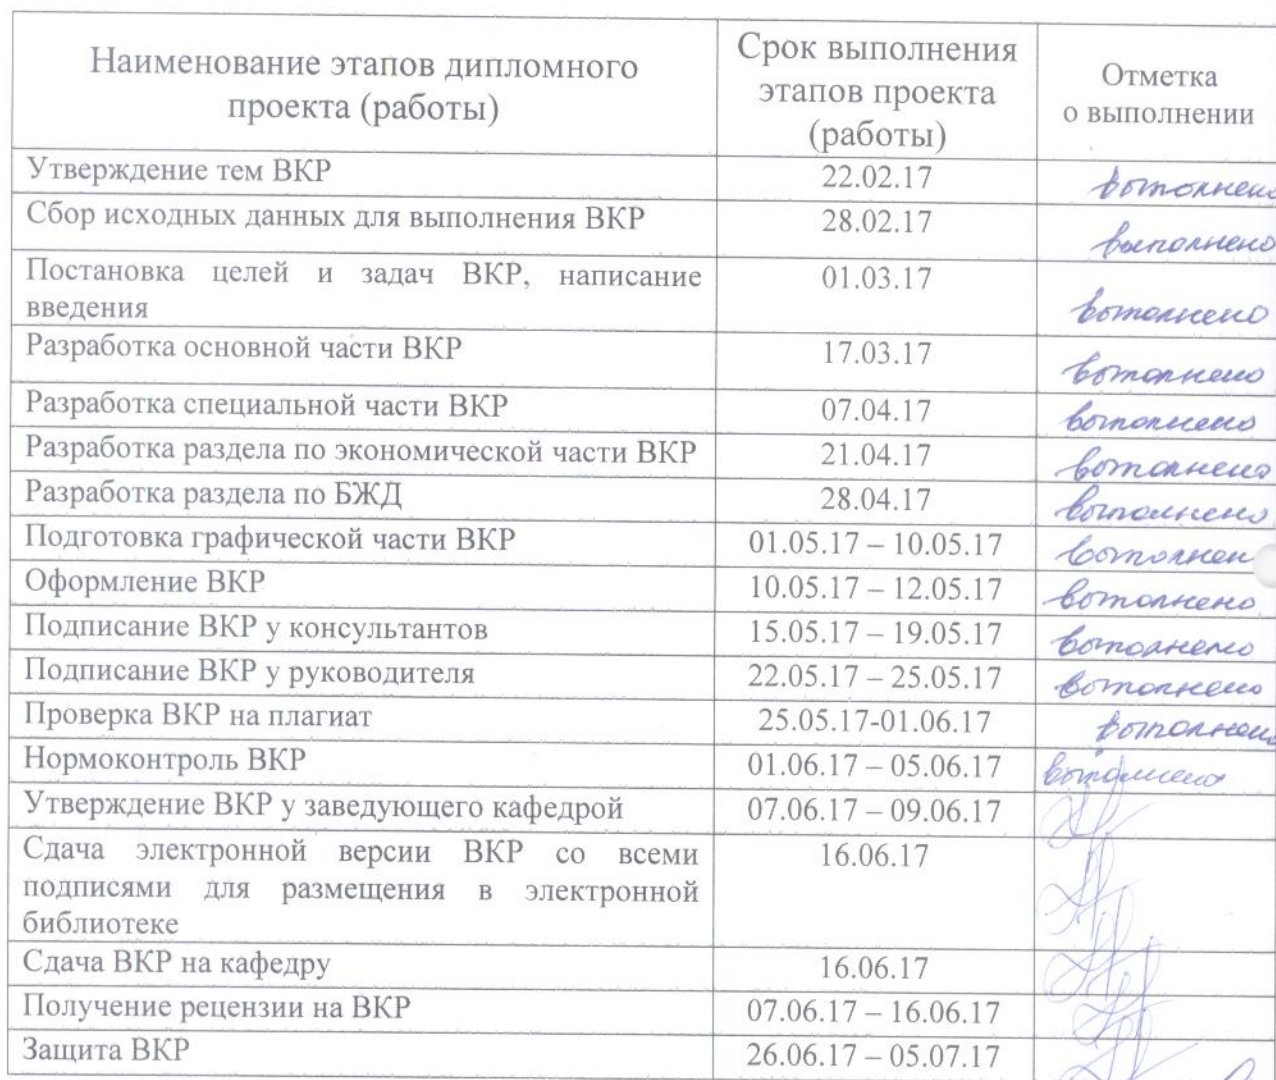 Наименование этапов дипломного
проекта (работы)
Срок выполнения
этапов проекта
(работы)
Отметка
о выполнении
Утверждение тем ВКР 22.02.17 выполнено
Сбор исходных данных для выполнения ВКР 28.02.17 выполнено
Постановка целей и задач ВКР, написание 01.03.17
введения выполнено
Разработка основной части ВКР 17.03.17 выполнено
Разработка специальной части ВКР 07.04.17 выполнено
Разработка раздела по экономической части ВКР 21.04.17 выполнено
Разработка раздела по БЖД 28.04.17 выполнено
Подготовка графической части ВКР 01.05.17 – 10.05.17 выполнен
Оформление ВКР 10.05.17 – 12.05.17 выполнено
Подписание ВКР у консультантов 15.05.17 – 19.05.17 выполнено
Подписание ВКР у руководителя 22.05.17 – 25.05.17 выполнено
Проверка ВКР на плагиат 25.05.17-01.06.17 выполнено
Нормоконтроль ВКР 01.06.17 – 05.06.17 выполнено
Утверждение ВКР у заведующего кафедрой 07.06.17 – 09.06.17
Сдача электронной версии ВКР со всеми 16.06.17
подписями для размещения в электронной
библиотеке
Сдача ВКР на кафедру 16.06.17
Получение рецензии на ВКР 07.06.17 – 16.06.17
Защита ВКР 26.06.17 – 05.07.17